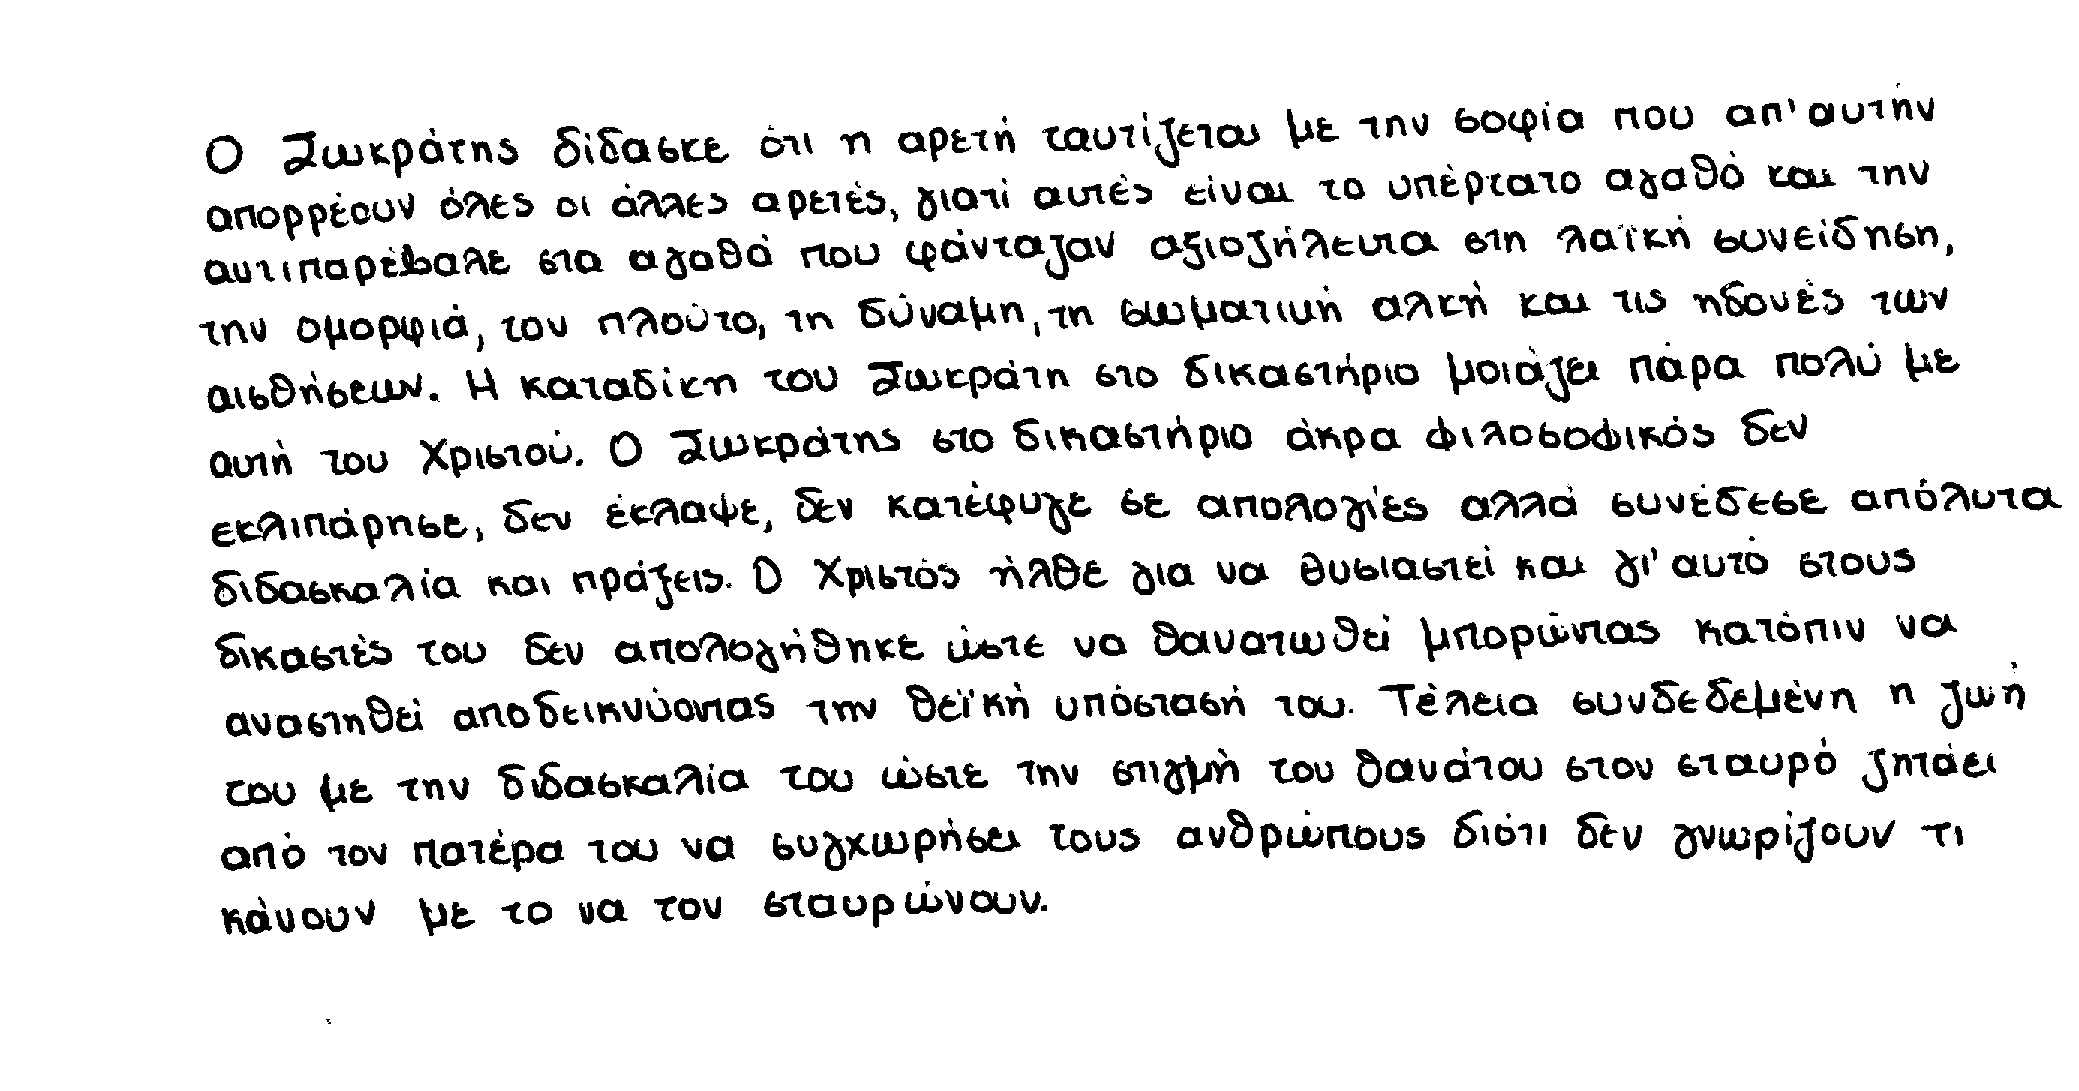 Ο Σωκράτης δίδασκε ότι η αρετή ταυτίζεται με την σοφία που απ' αυτήν
απορρέουν όλες οι άλλες αρετές, γιατί αυτές είναι το υπέρτατο αγαθό και την
αντιπαρέβαλε στα αγαθά που φάνταζαν αξιοζήλευτα στη λαϊκή συνείδηση,
την ομορφιά, τον πλούτο, τη δύναμη, τη σωματική αλκή και τις ηδονές των
αισθήσεων. Η καταδίκη του Σωκράτη στο δικαστήριο μοιάζει πάρα πολύ με
αυτή του Χριστού. Ο Σωκράτης στο δικαστήριο άκρα φιλοσοφικός δεν
εκλιπάρησε, δεν έκλαψε, δεν κατέφυγε σε απολογίες αλλά συνέδεσε απόλυτα
διδασκαλία και πράξεις. Ο Χριστός ήλθε για να θυσιαστεί και γι' αυτό στους
δικαστές του δεν απολογήθηκε ώστε να θανατωθεί μπορώντας κατόπιν να
αναστηθεί αποδεικνύοντας την θεϊκή υπόστασή του. Τέλεια συνδεδεμένη η ζωή
του με την διδασκαλία του ώστε την στιγμή του θανάτου στον σταυρό ζητάει
από τον πατέρα του να συγχωρήσει τους ανθρώπους διότι δεν γνωρίζουν τι
κάνουν με το να τον σταυρώνουν.